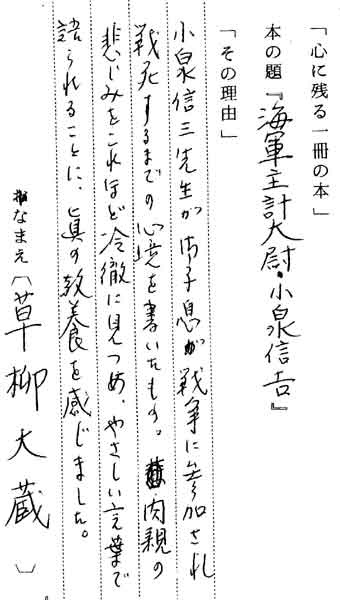 「心に残る一冊の本」
本の題『海軍主計大尉・小泉信吉』
「その理由」
小泉信三先生が御子息が戦争に参加され
戦死するまでの心境を書いたもの。肉親の
悲しみをこれほど冷徹に見つめ、やさしい言葉で
語られることに、真の教養を感じました。
おなまえ〔草柳大蔵〕